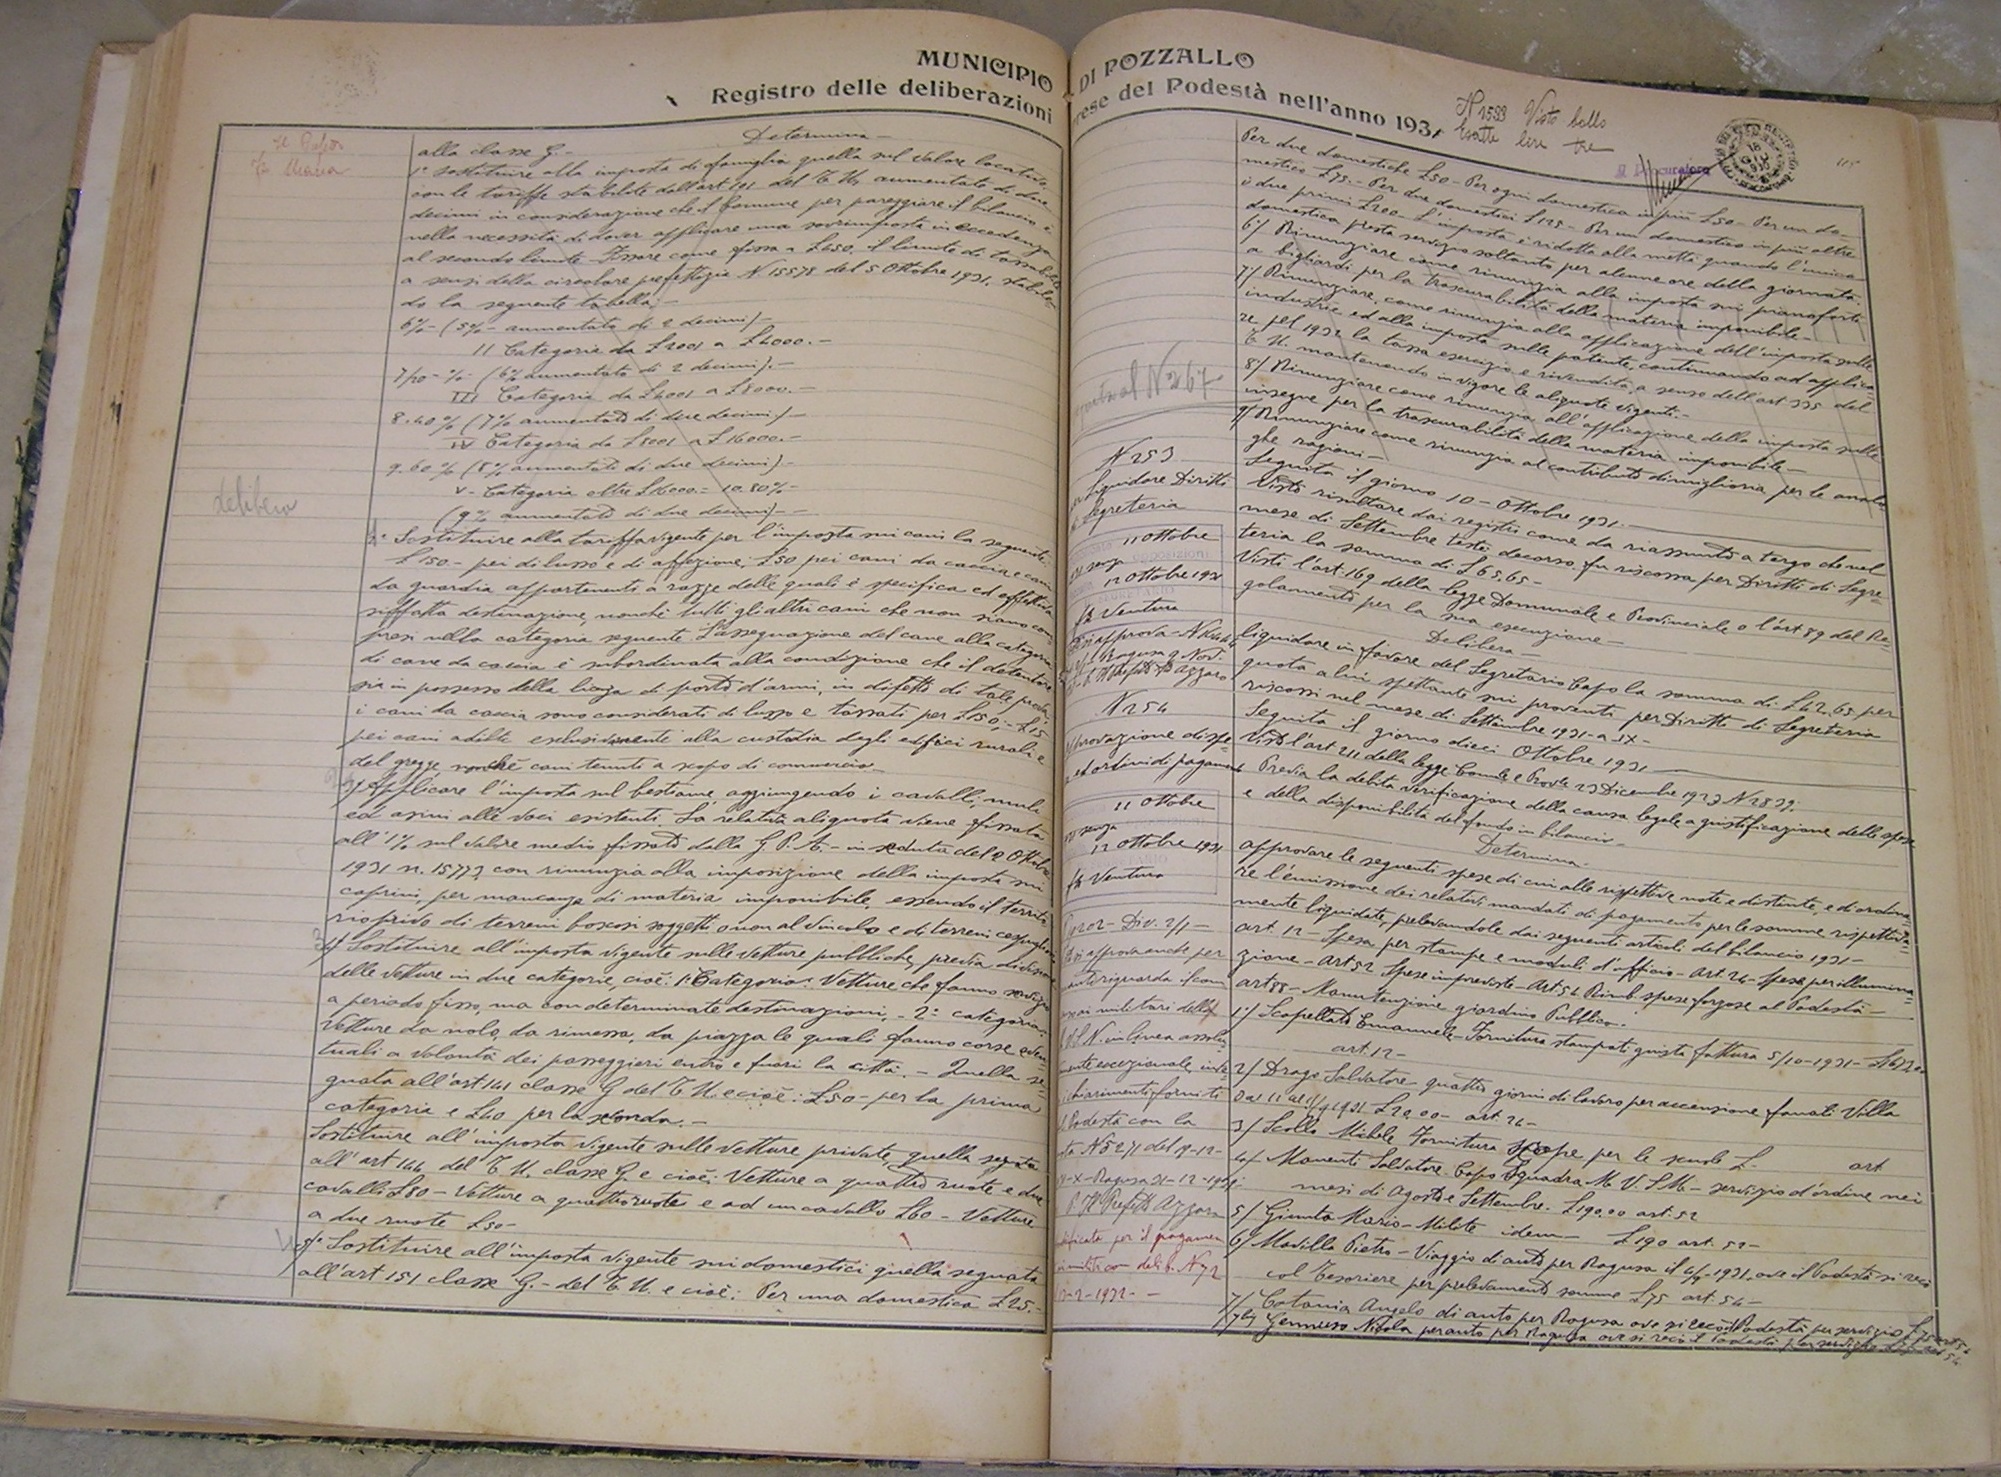 MUNICIPIO DI POZZALLO
Registro delle deliberazioni prese del Podestà nell'anno 1931
Determina -
alla classe G. -
1° sostituire alla imposta di famiglia quella sul valore locativo
con le tariffe stabilite dall'art 101 del T. U. aumentate di due
decimi in considerazione che il Comune per pareggiare il bilancio è
nella necessità di dover applicare una sovrimposta in eccedenza
al secondo limite. Fissare come fissa a £ 650 il limite di tassabilità
a sensi della circolare prefettizia N 15578 del 5 Ottobre 1931, stabilen-
do la seguente tabella: -
6% - (5% - aumentato di 2 decimi) -
II Categoria da £ 2001 a £ 4000. -
7/20 - % - (6% aumentato di 2 decimi). -
III Categoria da £ 4001 a £ 8000. -
8.40% (7% aumentato di due decimi) -
IV Categoria da £ 8001 a £ 16000. -
9.60% (8% aumentato di due decimi) -
V - Categoria oltre £ 16000 = 10.80% -
(9% aumentato di due decimi) - -
delibera
Sostituire alla tariffa vigente per l'imposta sui cani la seguente:
£ 150. - pei di lusso e di affezione; £ 50 pei cani da caccia e cani
da guardia appartenenti a razze delle quali è specifica ed effettiva
siffatta destinazione, nonché tutti gli altri cani che non siano com-
presi nella categoria seguente. L'assegnazione del cane alla categoria
di cane da caccia è subordinata alla condizione che il detentore
sia in possesso della licenza di porto d'armi, in difetto di tale
i cani da caccia sono considerati di lusso e tassati per £ 150; - £ 15
pei cani adibiti esclusivamente alla custodia degli edifici rurali e
del gregge nonché cani tenuti a scopo di commercio. -
Applicare l'imposta sul bestiame aggiungendo i cavalli, muli
ed asini alle voci esistenti. La relativa aliquota viene fissata
all'1% sul valore medio fissato dalla G. P. A. - in seduta del 2 Ottobre
1931 n. 15773, con rinunzia alla imposizione della imposta sui
caprini, per mancanza di materia imponibile, essendo il territo-
rio privo di terreni boscosi soggetti o non al vincolo e di terreni cespugliosi
4/ Sostituire all'imposta vigente sulle vetture pubbliche, previa divisione
delle vetture in due categorie, cioè: 1ª Categoria: Vetture che fanno servizio
a periodo fisso, ma con determinate destinazioni, - 2ª categoria:
Vetture da nolo, da rimessa, da piazza le quali fanno corse even-
tuali a volontà dei passeggieri entro e fuori la città. - Quella se-
gnata all'art 141 classe G del T. U. e cioè: £ 50 - per la prima
categoria e £ 40 per la seconda. -
Sostituire all'imposta vigente sulle vetture private, quella segnata
all'art 144 del T. U. classe G. e cioè: Vetture a quattro ruote e due
cavalli £ 80 - Vetture a quattro ruote e ad un cavallo £ 60 - Vetture
a due ruote £ 50 -
5° Sostituire all'imposta vigente sui domestici quella segnata
all'art 151 classe G. - del T. U. e cioè: Per una domestica £ 25. -
N 1593 Visto bollo
Esatte lire tre
Il Procuratore
115
Per due domestiche £ 50 - Per ogni domestica in più £ 50 - Per un do-
mestico £ 75. - Per due domestici £ 125 - Per un domestico in più oltre
i due primi £ 100 - L'imposta è ridotta alla metà quando l'unica
domestica presta servizio soltanto per alcune ore della giornata.
6/ Rinunziare come rinunzia alla imposta sui pianoforti
a bigliardi per la trascurabilità della materia imponibile -
7/ Rinunziare, come rinunzia alla applicazione dell'imposta sulle
industrie ed alla imposta sulle patente, continuando ad applica-
re pel 1932 la tassa esercizio e rivendita a senso dell'art 335 del
T. U. mantenendo in vigore le aliquote vigenti. -
8/ Rinunziare come rinunzia all'applicazione della imposta sulle
insegne per la trascurabilità della materia imponibile -
9/ Rinunziare come rinunzia al contributo di miglioria per le analo-
ghe ragioni -
Seguita il giorno 10 - Ottobre 1931 -
N 253
Liquidare Diritti
Segreteria
11 Ottobre
opposizioni
12 Ottobre 1931
SEGRETARIO
fto Ventura
Si approva -
Ragusa 9 Nov.
Azzaro
Visto risultare dai registri come da riassunto a tergo che nel
mese di Settembre testè decorso, fu riscossa per Diritti di Segre-
teria la somma di £ 65,65 -
Visti l'art. 169 della legge Comunale e Provinciale e l'art 89 del Re-
golamento per la sua esecuzione -
Delibera -
liquidare in favore del Segretario Capo la somma di £ 42.65 per
quota a lui spettante sui proventi per Diritti di Segreteria
riscossi nel mese di Settembre 1931 - a. IX -
Seguita il giorno dieci Ottobre 1931 -
N 254
Approvazione di spe-
se ed ordini di pagamento
11 Ottobre
senza
12 Ottobre 1931
fto Ventura
Visto l'art 211 della legge Com.le e Prov.le 23 Dicembre 1923 N 2839.
Previa la debita verificazione della causa legale a giustificazione delle spese
e della disponibilità del fondo in bilancio -
Determina -
approvare le seguenti spese di cui alle rispettive note e distinte, e di ordina-
re l'emissione dei relativi mandati di pagamento per le somme rispettiva-
mente liquidate, prelevandole dai seguenti articoli del bilancio 1931 -
art. 12 - Spesa per stampe e moduli d'ufficio - Art. 26 - Spese per illumina-
zione - Art 52 Spese impreviste - Art 54 Rimb. spese forzose al Podestà -
art 88 - Manutenzione giardino Pubblico. -
Div. 2/1 -
Si approva anche per
quanto riguarda il com-
militari della
in linea assolu-
tamente eccezionale
chiarimenti forniti
Podestà con la
nota N 5271 del 19-12-
Ragusa 31-12-1931
Azzaro
per il pagamen
delib. N 72
2-1932 - -
1/ Scapellato Emanuele - Fornitura stampati giusta fattura 5/10-1931 -
art. 12 -
2/ Drago Salvatore - quattro giorni di lavoro per accensione fanali Villa
1931 £ 20,00 - art. 26 -
3/ Scollo Michele Fornitura scope per le scuole £ - art
4/ Manenti Salvatore - Capo Squadra M. V. S. M. - servizio d'ordine nei
mesi di Agosto e Settembre. £ 190.00 art. 52
5/ Giunta Mario - Milite idem - £ 190 art. 52 -
6/ Modilla Pietro - Viaggio di auto per Ragusa il 4/9-1931, ove il Podestà si recò
col Tesoriere per prelevamento somme £ 75 art. 54 -
7/ Catania Angelo di auto per Ragusa ove si recò il Podestà per servizio £ 75 art 54
7 bis/ Gennuso Nicola per auto per Ragusa ove si recò il Podestà per servizio £ 75 art 54